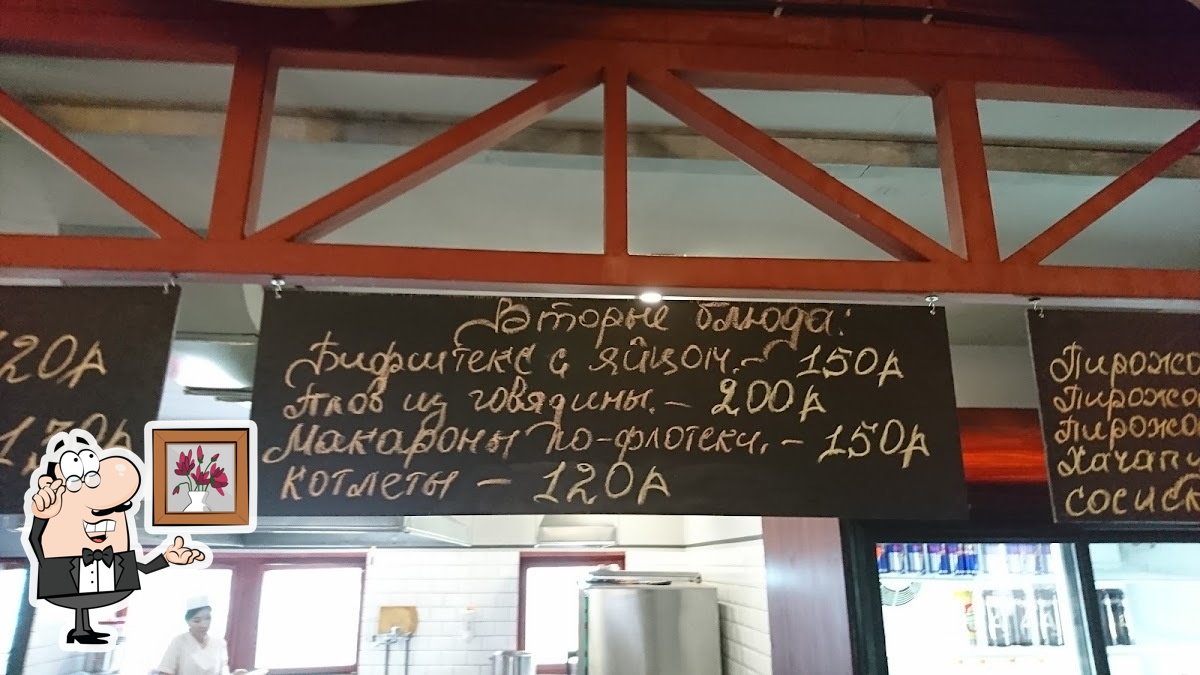 20д
130д
Вторые блюда:
Бифштекс с яйцом. - 150д
Плов из говядины. - 200д
Макароны по-флотски. - 150д
котлеты - 120д
Пирожо
Пирожо
Пирожо
Хачапу
сосиск